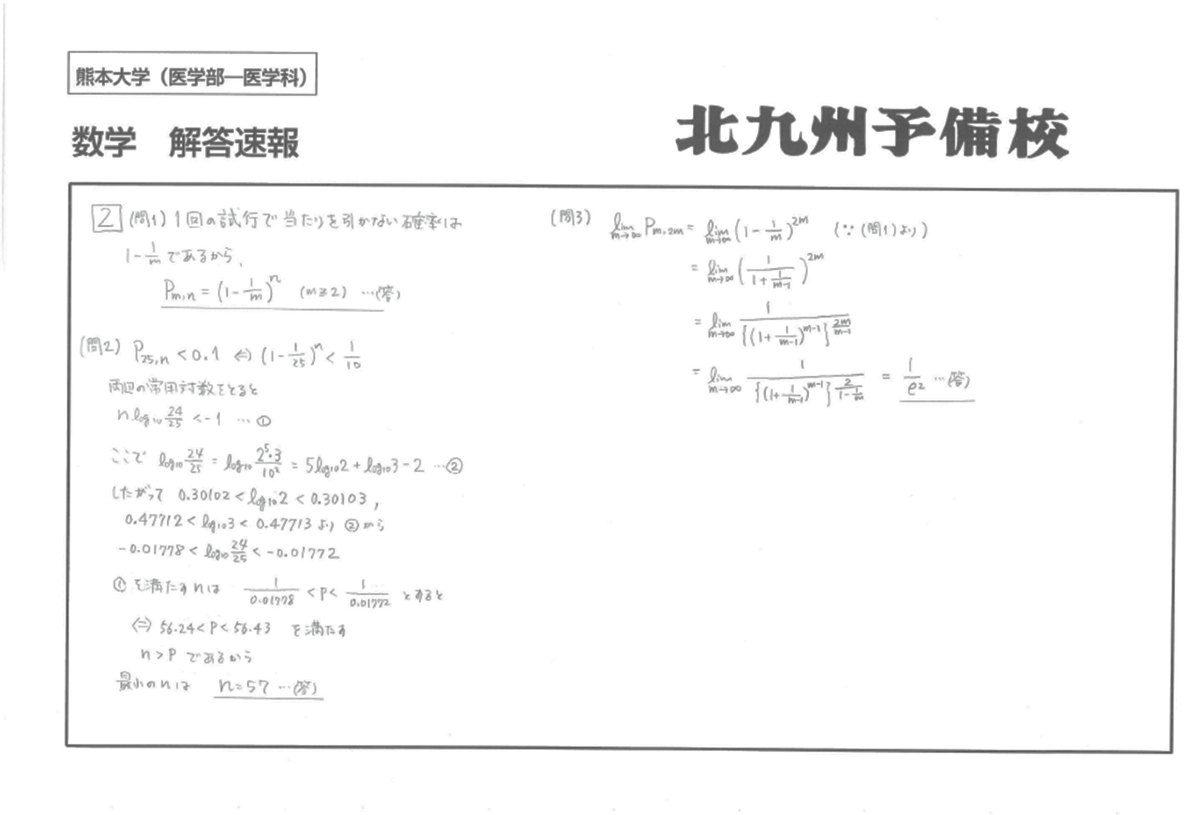 熊本大学(医学部―医学科)
数学 解答速報
北九州予備校
2 (問1) 1回の試行で当たりを引かない確率は
1-1/m であるから、
Pm,n = (1-1/m)^n (m≧2) …(答)
(問2) P25,n < 0.1 ⇔ (1-1/25)^n < 1/10
両辺の常用対数をとると
n log10 24/25 < -1 … ①
ここで log10 24/25 = log10 2^5・3/10^2 = 5log10 2 + log10 3 - 2 …②
したがって 0.30102 < log10 2 < 0.30103,
0.47712 < log10 3 < 0.47713 より ②から
-0.01778 < log10 24/25 < -0.01772
①を満たすnは 1/0.01778 < P < 1/0.01772 とすると
⇔ 56.24 < P < 56.43 を満たす
n > P であるから
最小のnは n=57 …(答)
(問3) lim m→∞ Pm,2m = lim m→∞ (1-1/m)^2m (∵(問1)より)
= lim m→∞ (1/(1+1/(m-1)))^2m
= lim m→∞ 1/{(1+1/(m-1))^(m-1)}^(2m/(m-1))
= lim m→∞ 1/{(1+1/(m-1))^(m-1)}^(2/(1-1/m)) = 1/e^2 …(答)